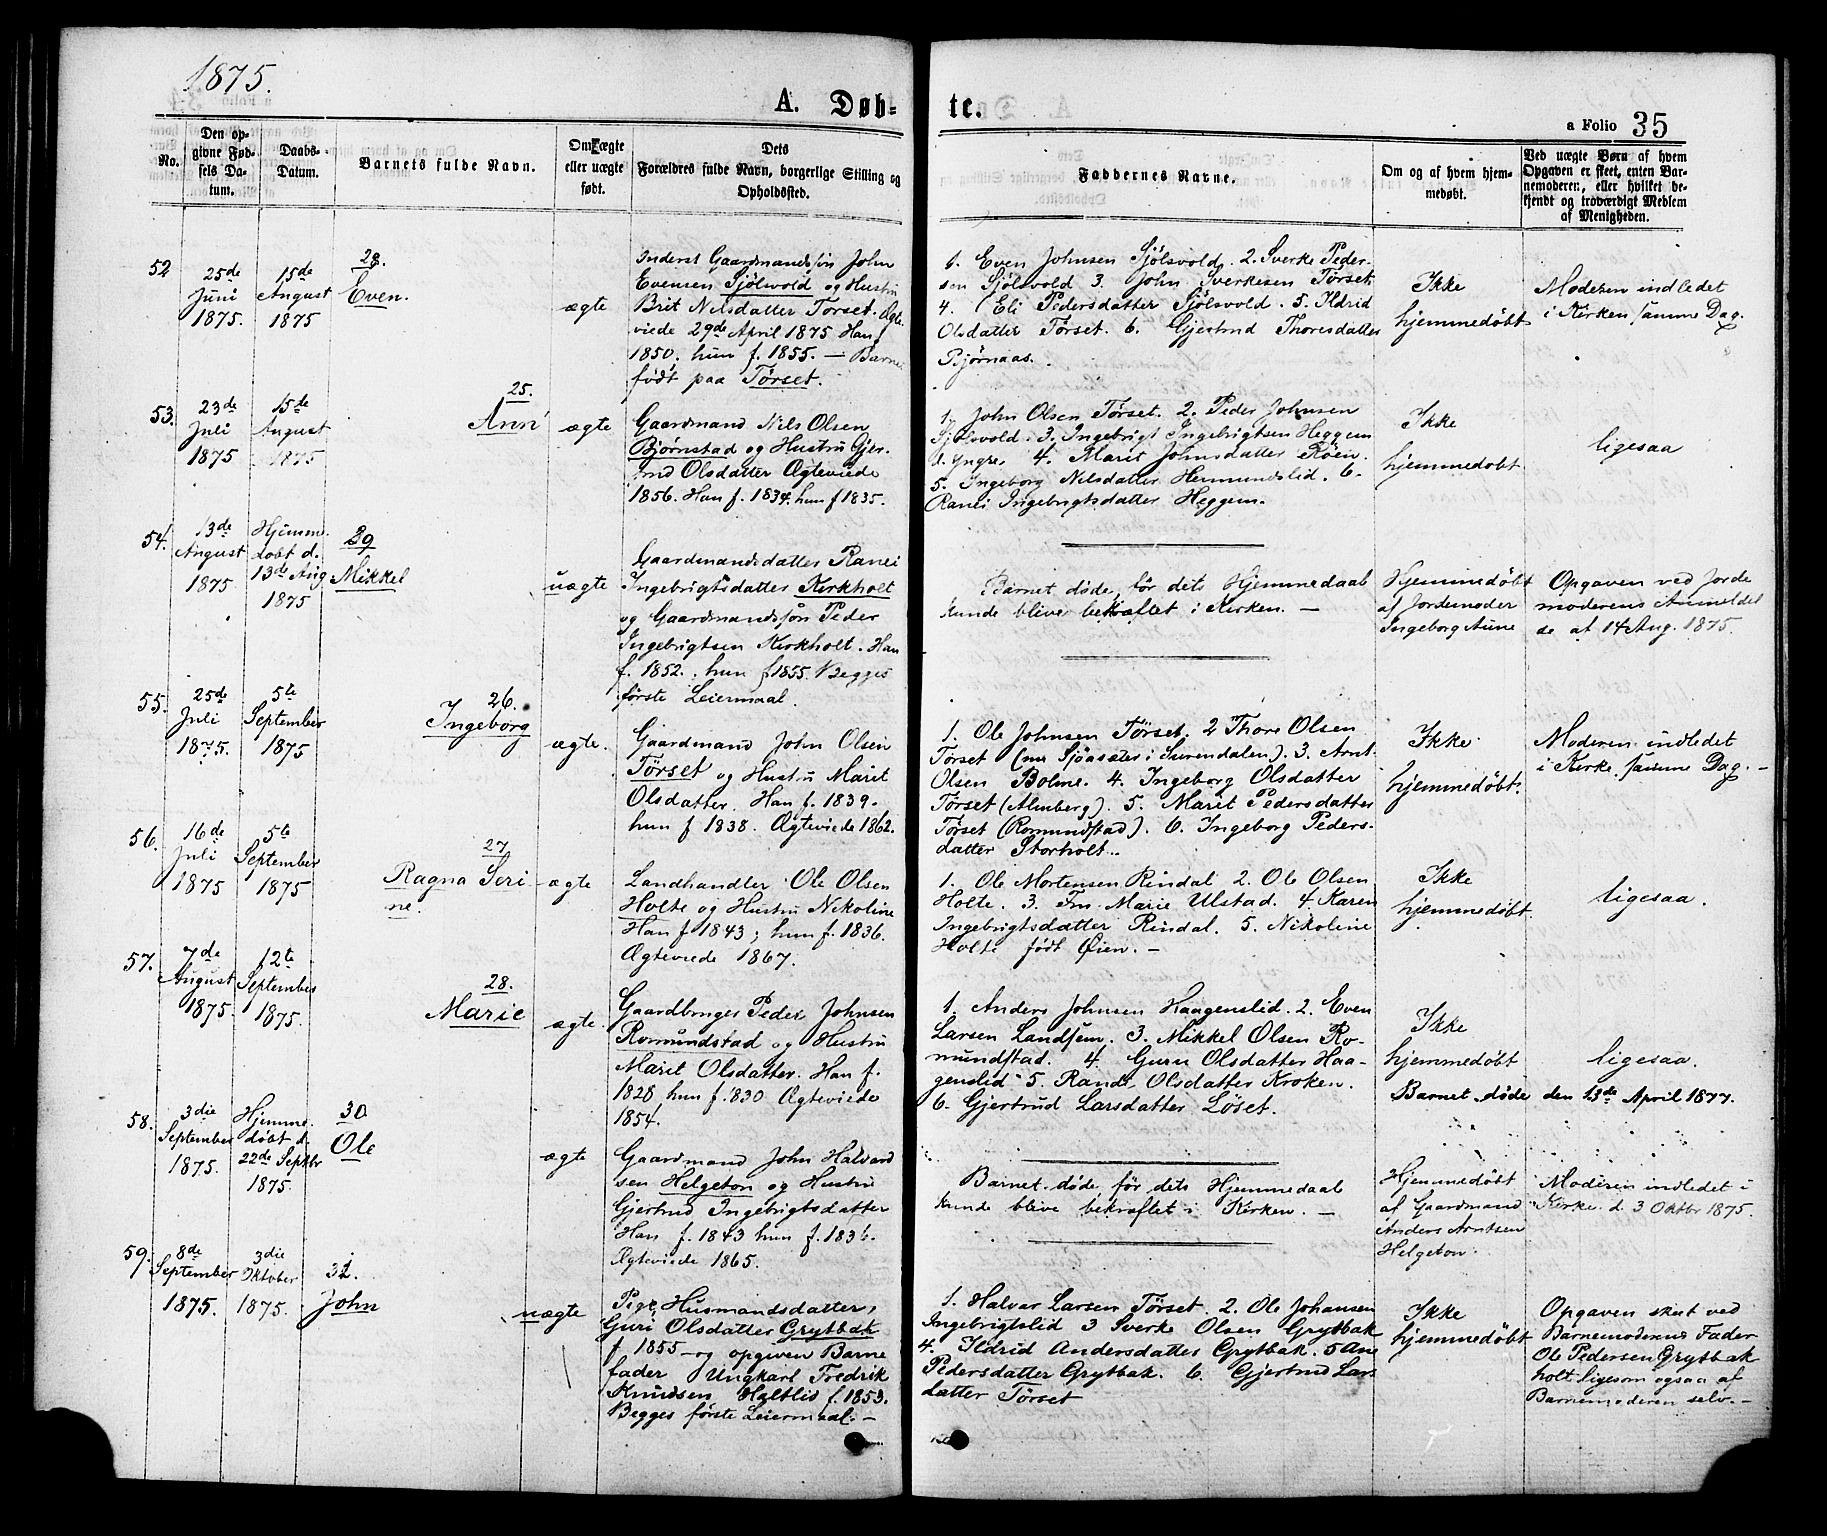 1875.
A. Døb-
te.
a Folio 35
No.
Den op-
givne Fød-
sels Da-
tum.
Daabs-
Datum.
Barnets fulde Navn.
Om ægte
eller uægte
født.
Dets
Forældres fulde Navn, borgerlige Stilling og
Opholdssted.
Faddernes Navne.
Om og af hvem hjem-
medøbt.
Ved uægte Børn af hvem
Opgaven er skeet, enten Bar-
nemoderen, eller hvilket be-
kjendt og troværdigt Medlem
af Menigheden.
52
25de
Juni
1875.
15de
August
1875
28.
Even.
ægte
Inderst Gaardmandssøn John
Evensen Sjölsvold og Hustru
Brit Nilsdatter Torset. Ægte
viede 29de April 1875 Han f
1850, hun f. 1855. — Barne
født paa Törset.
1. Even Johnsen Sjölsvold. 2. Sverke Peder-
sen Sjölsvold 3. John Sverkesen Törset
4. Eli Pedersdatter Sjölsvold. 5. Ildrid
Olsdatter Törset. 6. Gjertrud Thoresdatter
Bjørnaas.
Ikke
hjemmedøbt
Moderen indledet
i Kirken samme Dag.
53.
23de
Juli
1875
15de
August
1875
25.
Ann
ægte
Gaardmand Nils Olsen
Bjørnstad og Hustru Gjer-
trud Olsdatter Ægteviede
1856. Han f. 1834. hun f 1835.
1. John Olsen Törset. 2. Peder Johnsen
Sjölsvold. 3. Ingebrigt Ingebrigtsen Heggem
d. yngre 4. Marit Johnsdatter Röen.
5. Ingeborg Nilsdatter Hermundslid. 6.
Ranei Ingebrigtsdatter Heggem.
Ikke
hjemmedøbt.
ligesaa
54.
13de
August
1875.
Hjemme
døbt d.
13de Aug
1875
29
Mikkel
uægte
Gaardmandsdatter Ranei
Ingebrigtsdatter Kirkholt
og Gaardmandssøn Peder
Ingebrigtsen Kirkholt. Han
f. 1852. hun f 1855. Begges
første Leiermaal.
Barnet døde, før dets Hjemmedaab
kunde blive bekræftet i Kirken. —
Hjemmedøbt
af Jordemoder
Ingeborg Aune
Opgaven ved Jorde
moderens Anmeldel
se af 14 Aug. 1875.
55.
25de
Juli
1875.
5te
September
1875
26.
Ingeborg
ægte.
Gaardmand John Olsen
Törset og Hustru Marit
Olsdatter. Han f. 1839.
hun f 1838. Ægteviede 1862.
1. Ole Johnsen Törset. 2 Thore Olsen
Törset (nu Sjöasæter i Surendalen). 3. Arnt
Olsen Bolme. 4. Ingeborg Olsdatter
Törset (Almberg). 5. Marit Pedersdatter
Törset (Romundstad). 6. Ingeborg Peders-
datter Storholt.
Ikke
hjemmedøbt.
Moderen indledet
i Kirke samme Dag. —
56.
16de
Juli
1875
5te
September
1875
27
Ragna Seri
ne.
ægte
Landhandler Ole Olsen
Holte og Hustru Nikoline
Han f 1843; hun f. 1836.
Ægteviede 1867.
1. Ole Mortensen Rindal 2. Ole Olsen
Holte. 3. Fru Marie Ulstad. 4. Karen
Ingebrigtsdatter Rindal. 5. Nikoline
Holte født Øien. —
Ikke
hjemmedøbt.
ligesaa.
57.
7de
August
1875.
12te
September
1875.
28.
Marie
ægte.
Gaardbruger Peder Johnsen
Romundstad og Hustru
Marit Olsdatter. Han f.
1828 hun f. 1830 Ægteviede
1854.
1. Anders Johnsen Haagenslid. 2. Even
Larsen Landsem. 3. Mikkel Olsen Ro-
mundstad. 4. Guru Olsdatter Haa-
genslid 5. Randi Olsdatter Kroken.
6. Gjertrud Larsdatter Löset.
Ikke
hjemmedøbt
ligesaa.
Barnet døde den 13de April 1877.
58.
3die
September
1875.
Hjemme
døbt d.
22de Septbr
1875.
30
Ole
ægte
Gaardmand John Halvard
sen Helgeton og Hustru
Gjertrud Ingebrigtsdatter
Han f. 1843 hun f. 1836.
Ægteviede 1865.
Barnet døde, før dets Hjemmedaab
kunde blive bekræftet i Kirken. —
Hjemmedøbt
af Gaardmand
Anders Arntsen
Helgeton.
Moderen indledet i
Kirke d. 3 Oktbr 1875.
59.
8de
September
1875.
3die
Oktober
1875.
31.
John
uægte
Pige, Husmandsdatter,
Guri Olsdatter Grytbak
f 1855 og opgiven Barne
fader Ungkarl Fredrik
Knudsen Haltlid f. 1853.
Begges første Leiermaal. —
1. Halvar Larsen Törset. 2. Ole Johansen
Ingebrigtslid 3 Sverke Olsen Grytbak
4. Ildrid Andersdatter Grytbak. 5 Ane
Pedersdatter Grytbak. 6. Gjertrud Lars
datter Törset
Ikke
hjemmedøbt
Opgaven skeet ved
Barnemoderens Fader
Ole Pedersen Grytbak
holt ligesom ogsaa af
Barnemoderen selv. —